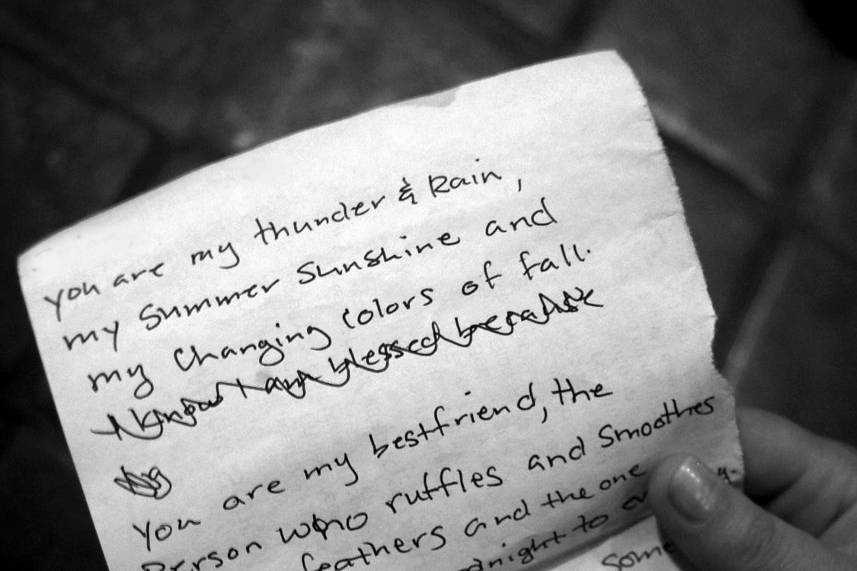 you are my thunder & Rain,
my summer sunshine and
my changing colors of fall.
I know I am blessed because
You are my bestfriend, the
Person who ruffles and smoothes
feathers and the one
to
some